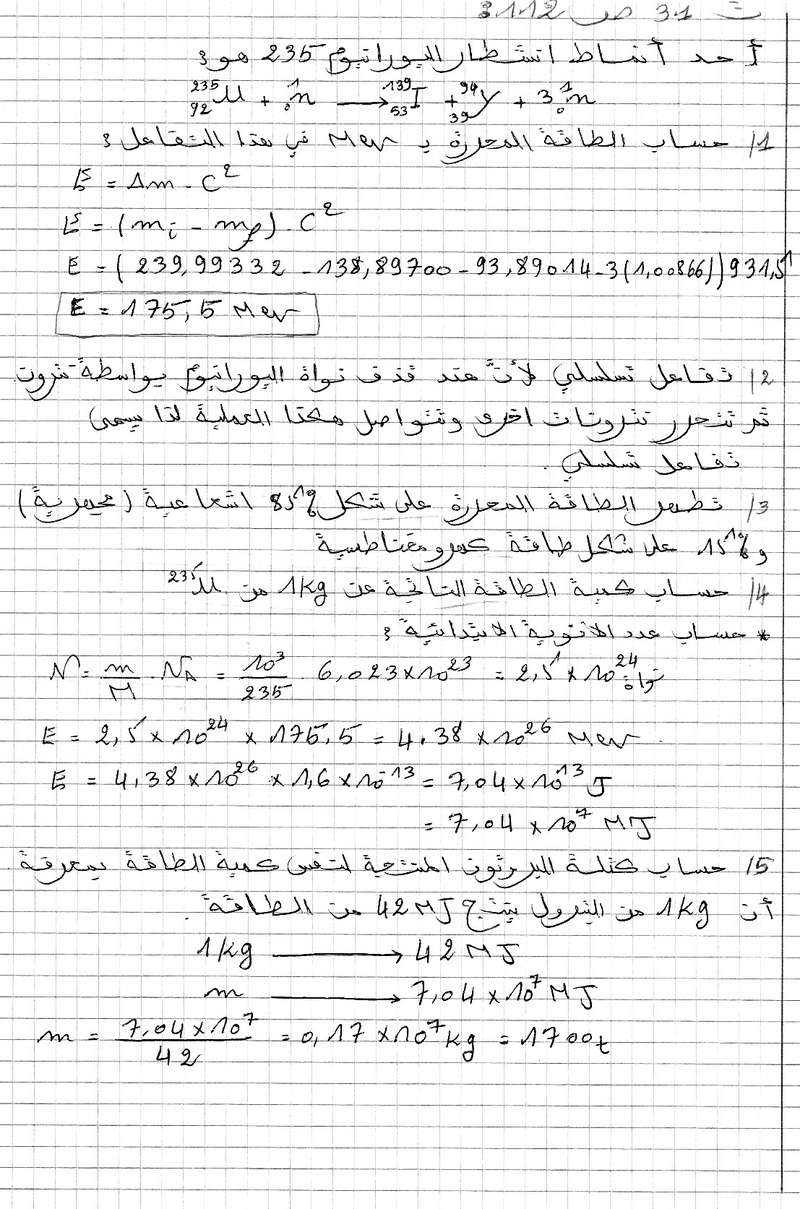 ت 31 ص 112:
أحد أنماط انشطار اليورانيوم 235 هو:
²³⁵₉₂U + ¹₀n → ¹³⁹₅₃I + ⁹⁴₃₉Y + 3 ¹₀n
1/ حساب الطاقة المحررة بـ Mev في هذا التفاعل:
E = Δm . C²
E = (mᵢ - m_f) . C²
E = (239,99332 - 138,89700 - 93,89014 - 3(1,00866)) 931,5
E = 175,5 Mev
2/ تفاعل تسلسلي لأنّ عند قذف نواة اليورانيوم بواسطة نترون
ثم تتحرر نترونات اخرى وتتواصل هكذا العملية لذا يسمى
تفاعل تسلسلي.
3/ تظهر الطاقة المحررة على شكل 85% اشعاعية (مجهرية)
و 15% على شكل طاقة كهرومغناطيسية
4/ حساب كمية الطاقة الناتجة عن 1kg من ²³⁵U
* حساب عدد الأنوية الابتدائية:
N = m/M . N_A = 10³/235 . 6,023×10²³ = 2,5 × 10²⁴ نواة
E = 2,5 × 10²⁴ × 175,5 = 4.38 × 10²⁶ Mev
E = 4,38 × 10²⁶ × 1,6 × 10⁻¹³ = 7,04 × 10¹³ J
= 7,04 × 10⁷ MJ
5/ حساب كتلة البترول المنتجة لنفس كمية الطاقة بمعرفة
أن 1kg من البترول ينتج 42 MJ من الطاقة.
1kg → 42 MJ
m → 7,04 × 10⁷ MJ
m = 7,04 × 10⁷/42 = 0,17 × 10⁷ kg = 1700t